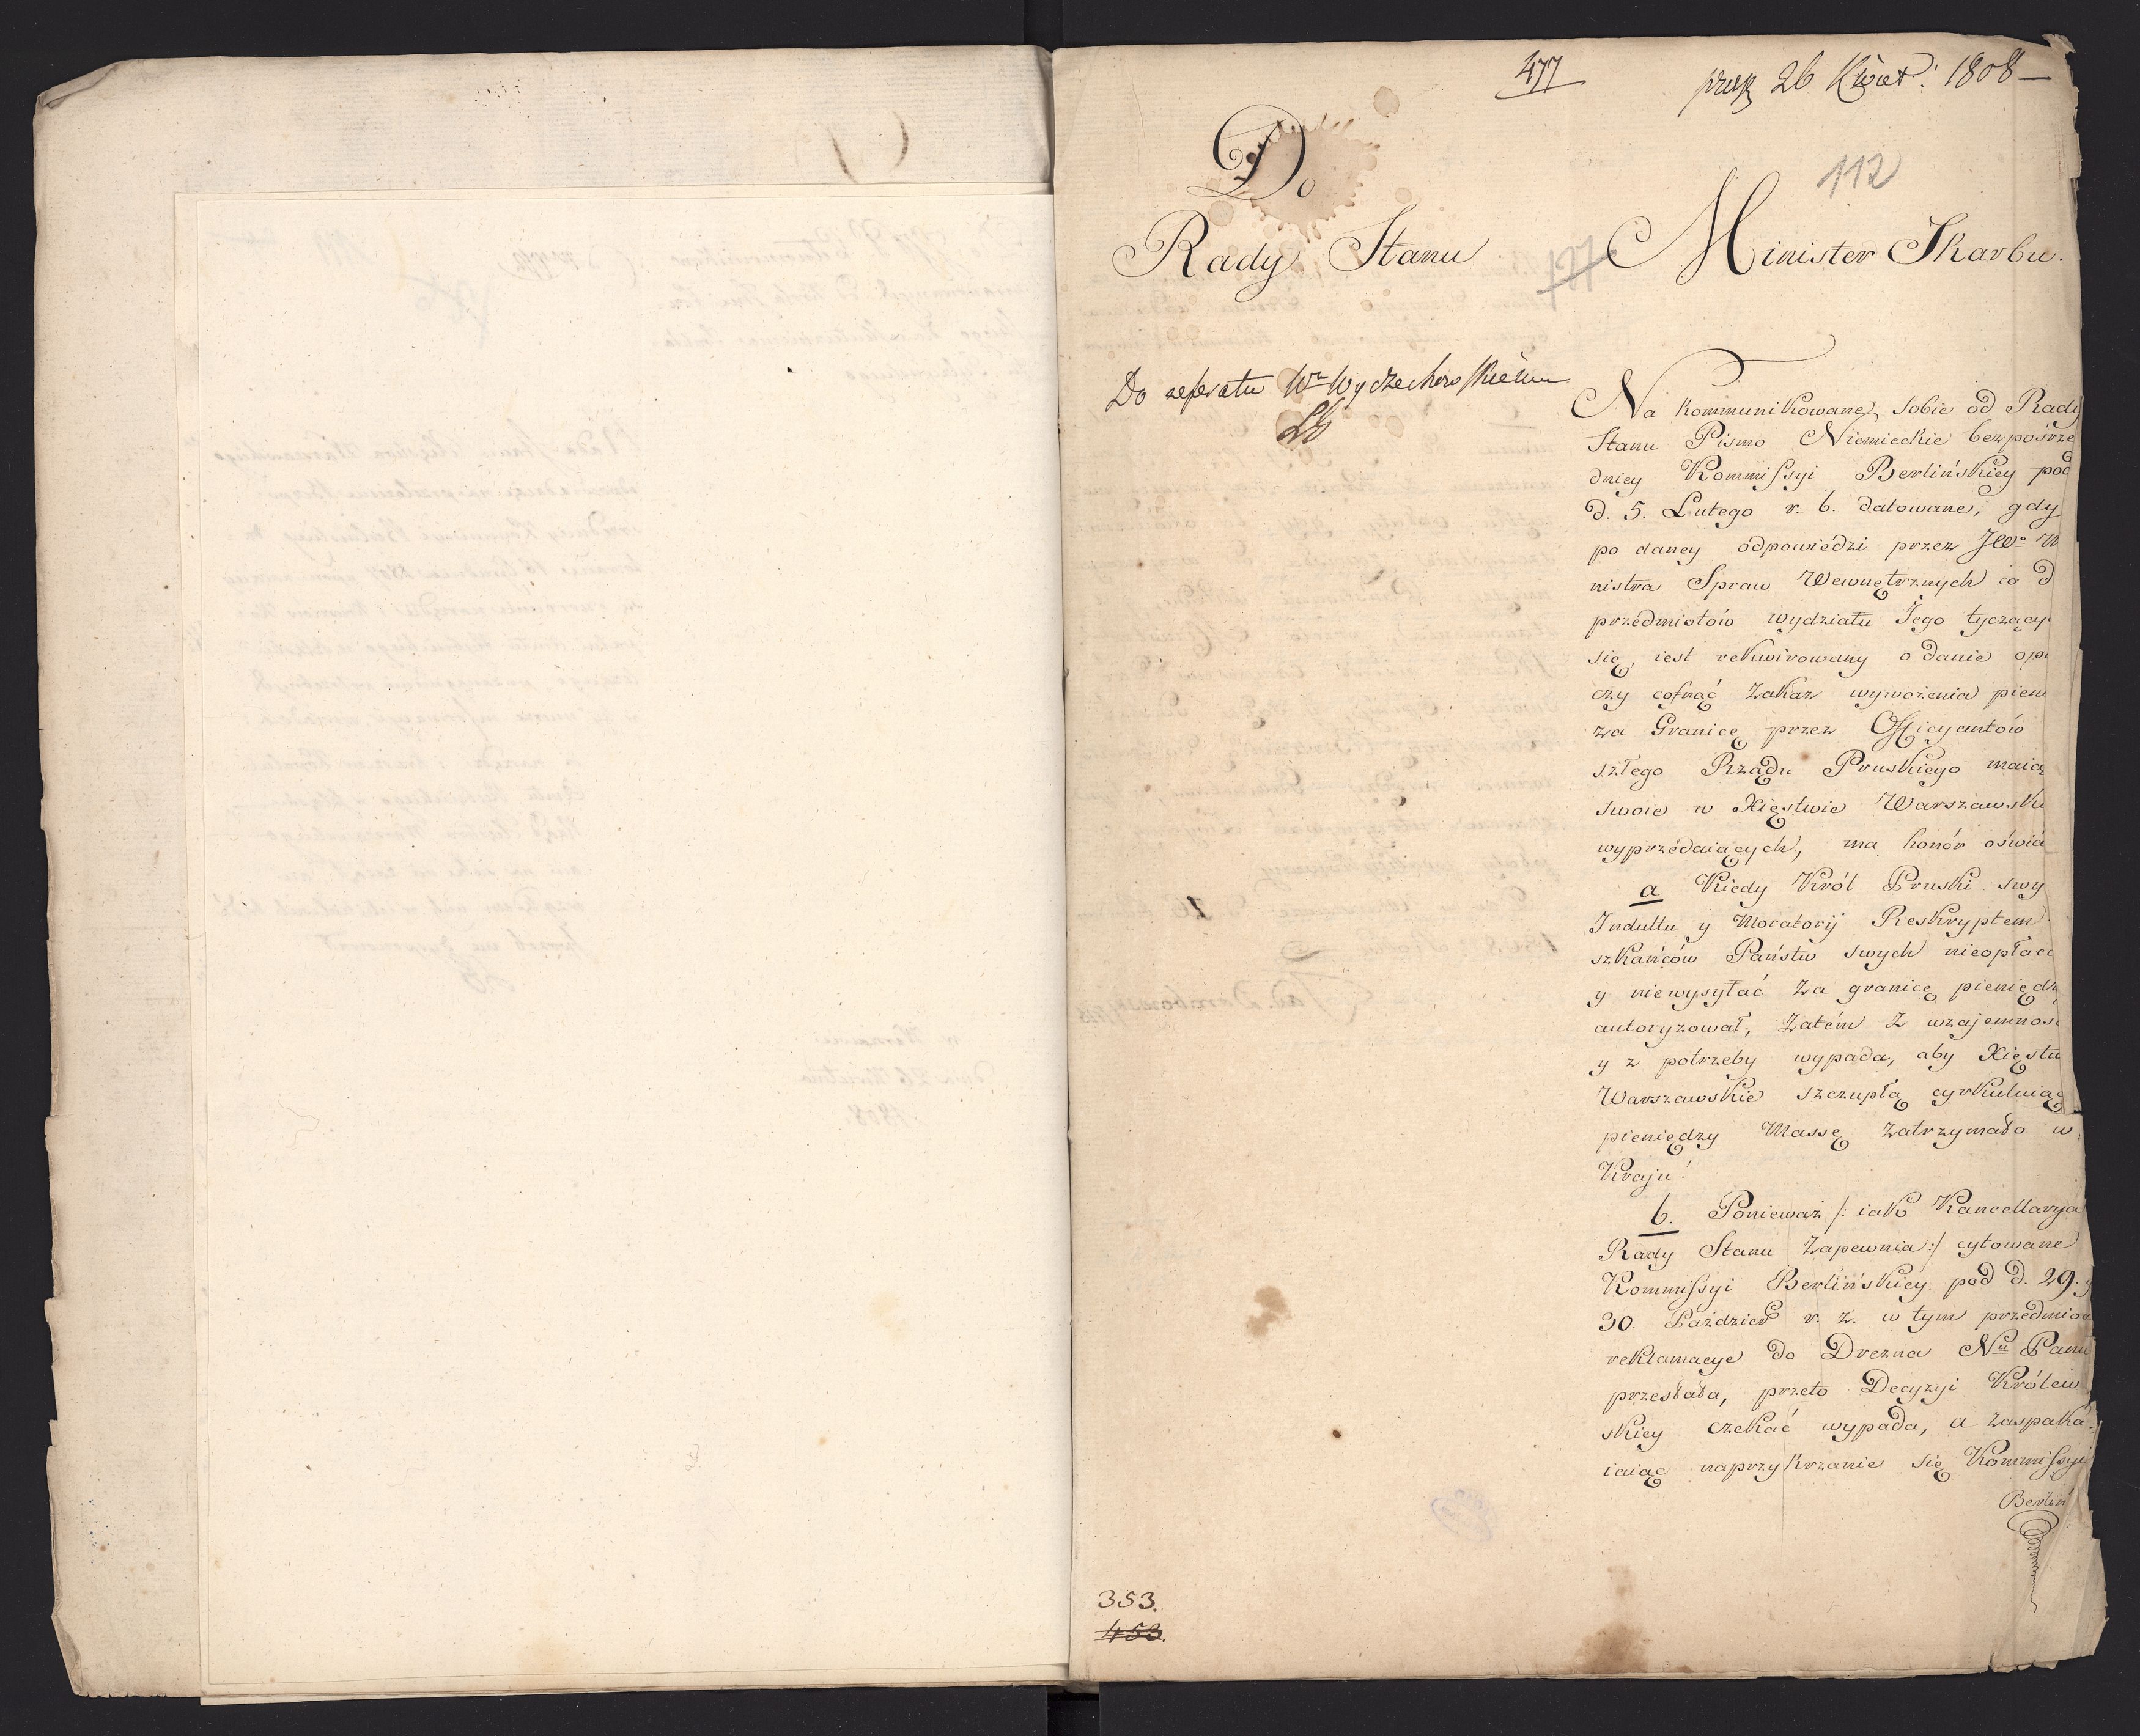 477
26 Kwiet: 1808 —
112
Do
Rady Stanu
127
Minister Skarbu.
Do referatu Wu Wyczechowskiemu
Na kommunikowane sobie od Rady
Stanu Pismo Niemieckie bezpośrze
dniey Kommissyi Berlińskiey pod
d. 5. Lutego r. b. datowane, gdy
po daney odpowiedzi przez JWo Mi
nistra Spraw Wewnętrznych co d
przedmiotów wydziału Jego tyczący
się, iest rekwirowany o danie opi
czy cofnąć Zakaz wywożenia pien
za Granicę przez Officyantów
szłego Rządu Pruskiego maią
swoie w Xięstwie Warszawski
wyprzedaiących, ma honór oświa
a Kiedy Król Pruski swy
Indultu y Moratorij Reskryptem
szkańców Państw swych nieopłac
y niewysyłać za granicę pieniędz
autoryzował, Zatém z wzajemnoś
y z potrzeby wypada, aby Xięstw
Warszawskie szczupłą cyrkuluiąc
pieniędzy Massę zatrzymało w
Kraju.
b. Ponieważ /: iak Kancellarya
Rady Stanu Zapewnia :/ cytowane
Kommissyi Berlińskiey pod d. 29. y
30. Paździer r. z. w tym przedmio
reklamacye do Drezna Nu Panu
przesłała, przeto Decyzyi Królew
skiey czekać wypada, a zaspaka-
iaiąc naprzykrzanie się Kommissyi
Berliń
353.
453.